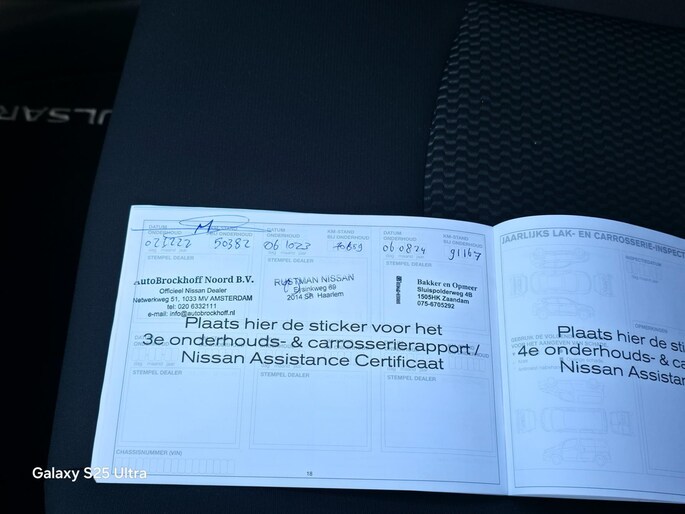 PULSAR
DATUM ONDERHOUD KM-STAND BIJ ONDERHOUD DATUM ONDERHOUD KM-STAND BIJ ONDERHOUD DATUM ONDERHOUD KM-STAND BIJ ONDERHOUD
50382 061023 060824 91167
dag maand jaar dag maand jaar dag maand jaar
STEMPEL DEALER STEMPEL DEALER STEMPEL DEALER
AutoBrockhoff Noord B.V.
Officieel Nissan Dealer
Netwerkweg 51, 1033 MV AMSTERDAM
tel: 020 6332111
e-mail: info@autobrockhoff.nl
NISSAN
69
2014 Haarlem
Bakker en Opmeer
Sluispolderweg 4B
1505HK Zaandam
075-6705292
Plaats hier de sticker voor het
3e onderhouds- & carrosserierapport /
Nissan Assistance Certificaat
STEMPEL DEALER STEMPEL DEALER STEMPEL DEALER
CHASSISNUMMER (VIN)
JAARLIJKS LAK- EN CARROSSERIE-INSPECT
Plaats hier de sti
4e onderhouds- & ca
Nissan Assistan
Galaxy S25 Ultra